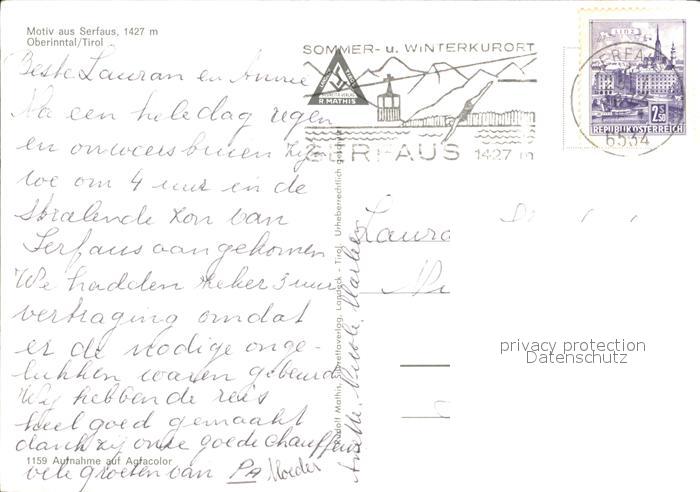 Motiv aus Serfaus, 1427 m
Oberinntal/Tirol
Beste Lauran en Annie
Na een hele dag regen
en onweersbuien zijn
we om 4 uur in de
stralende zon van
Serfaus aangekomen
We hadden zeker 3 uur
vertraging omdat
er de nodige onge-
lukken waren gebeurd
Wij hebben de reis
heel goed gemaakt
dank zij onze goede chauffeur
vele groeten van PA Moeder
1159 Aufnahme auf Agfacolor
Rudolf Mathis, Silvrettaverlag, Landeck - Tirol. Urheberrechtlich geschützt
SOMMER- u. WINTERKURORT
R. MATHIS
SERFAUS 1427 m
LINZ
2 S 50
REPUBLIK ÖSTERREICH
SERFAUS
6534
privacy protection
Datenschutz